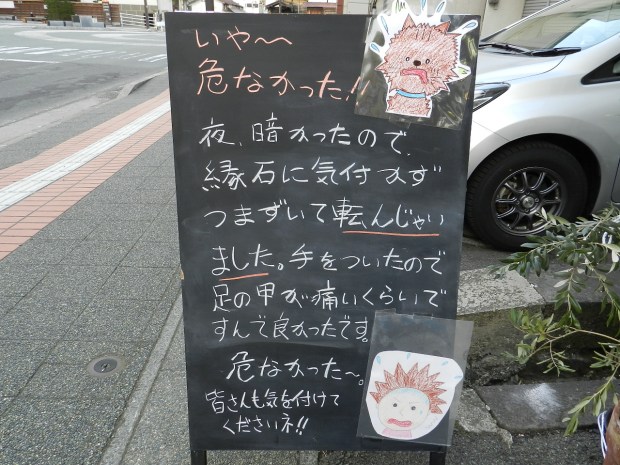 いや〜
危なかった!!
夜、暗かったので、
縁石に気付かず
つまずいて転んじゃい
ました。手をついたので
足の甲が痛いくらいで
すんで良かったです。
危なかった〜。
皆さんも気を付けて
くださいネ!!